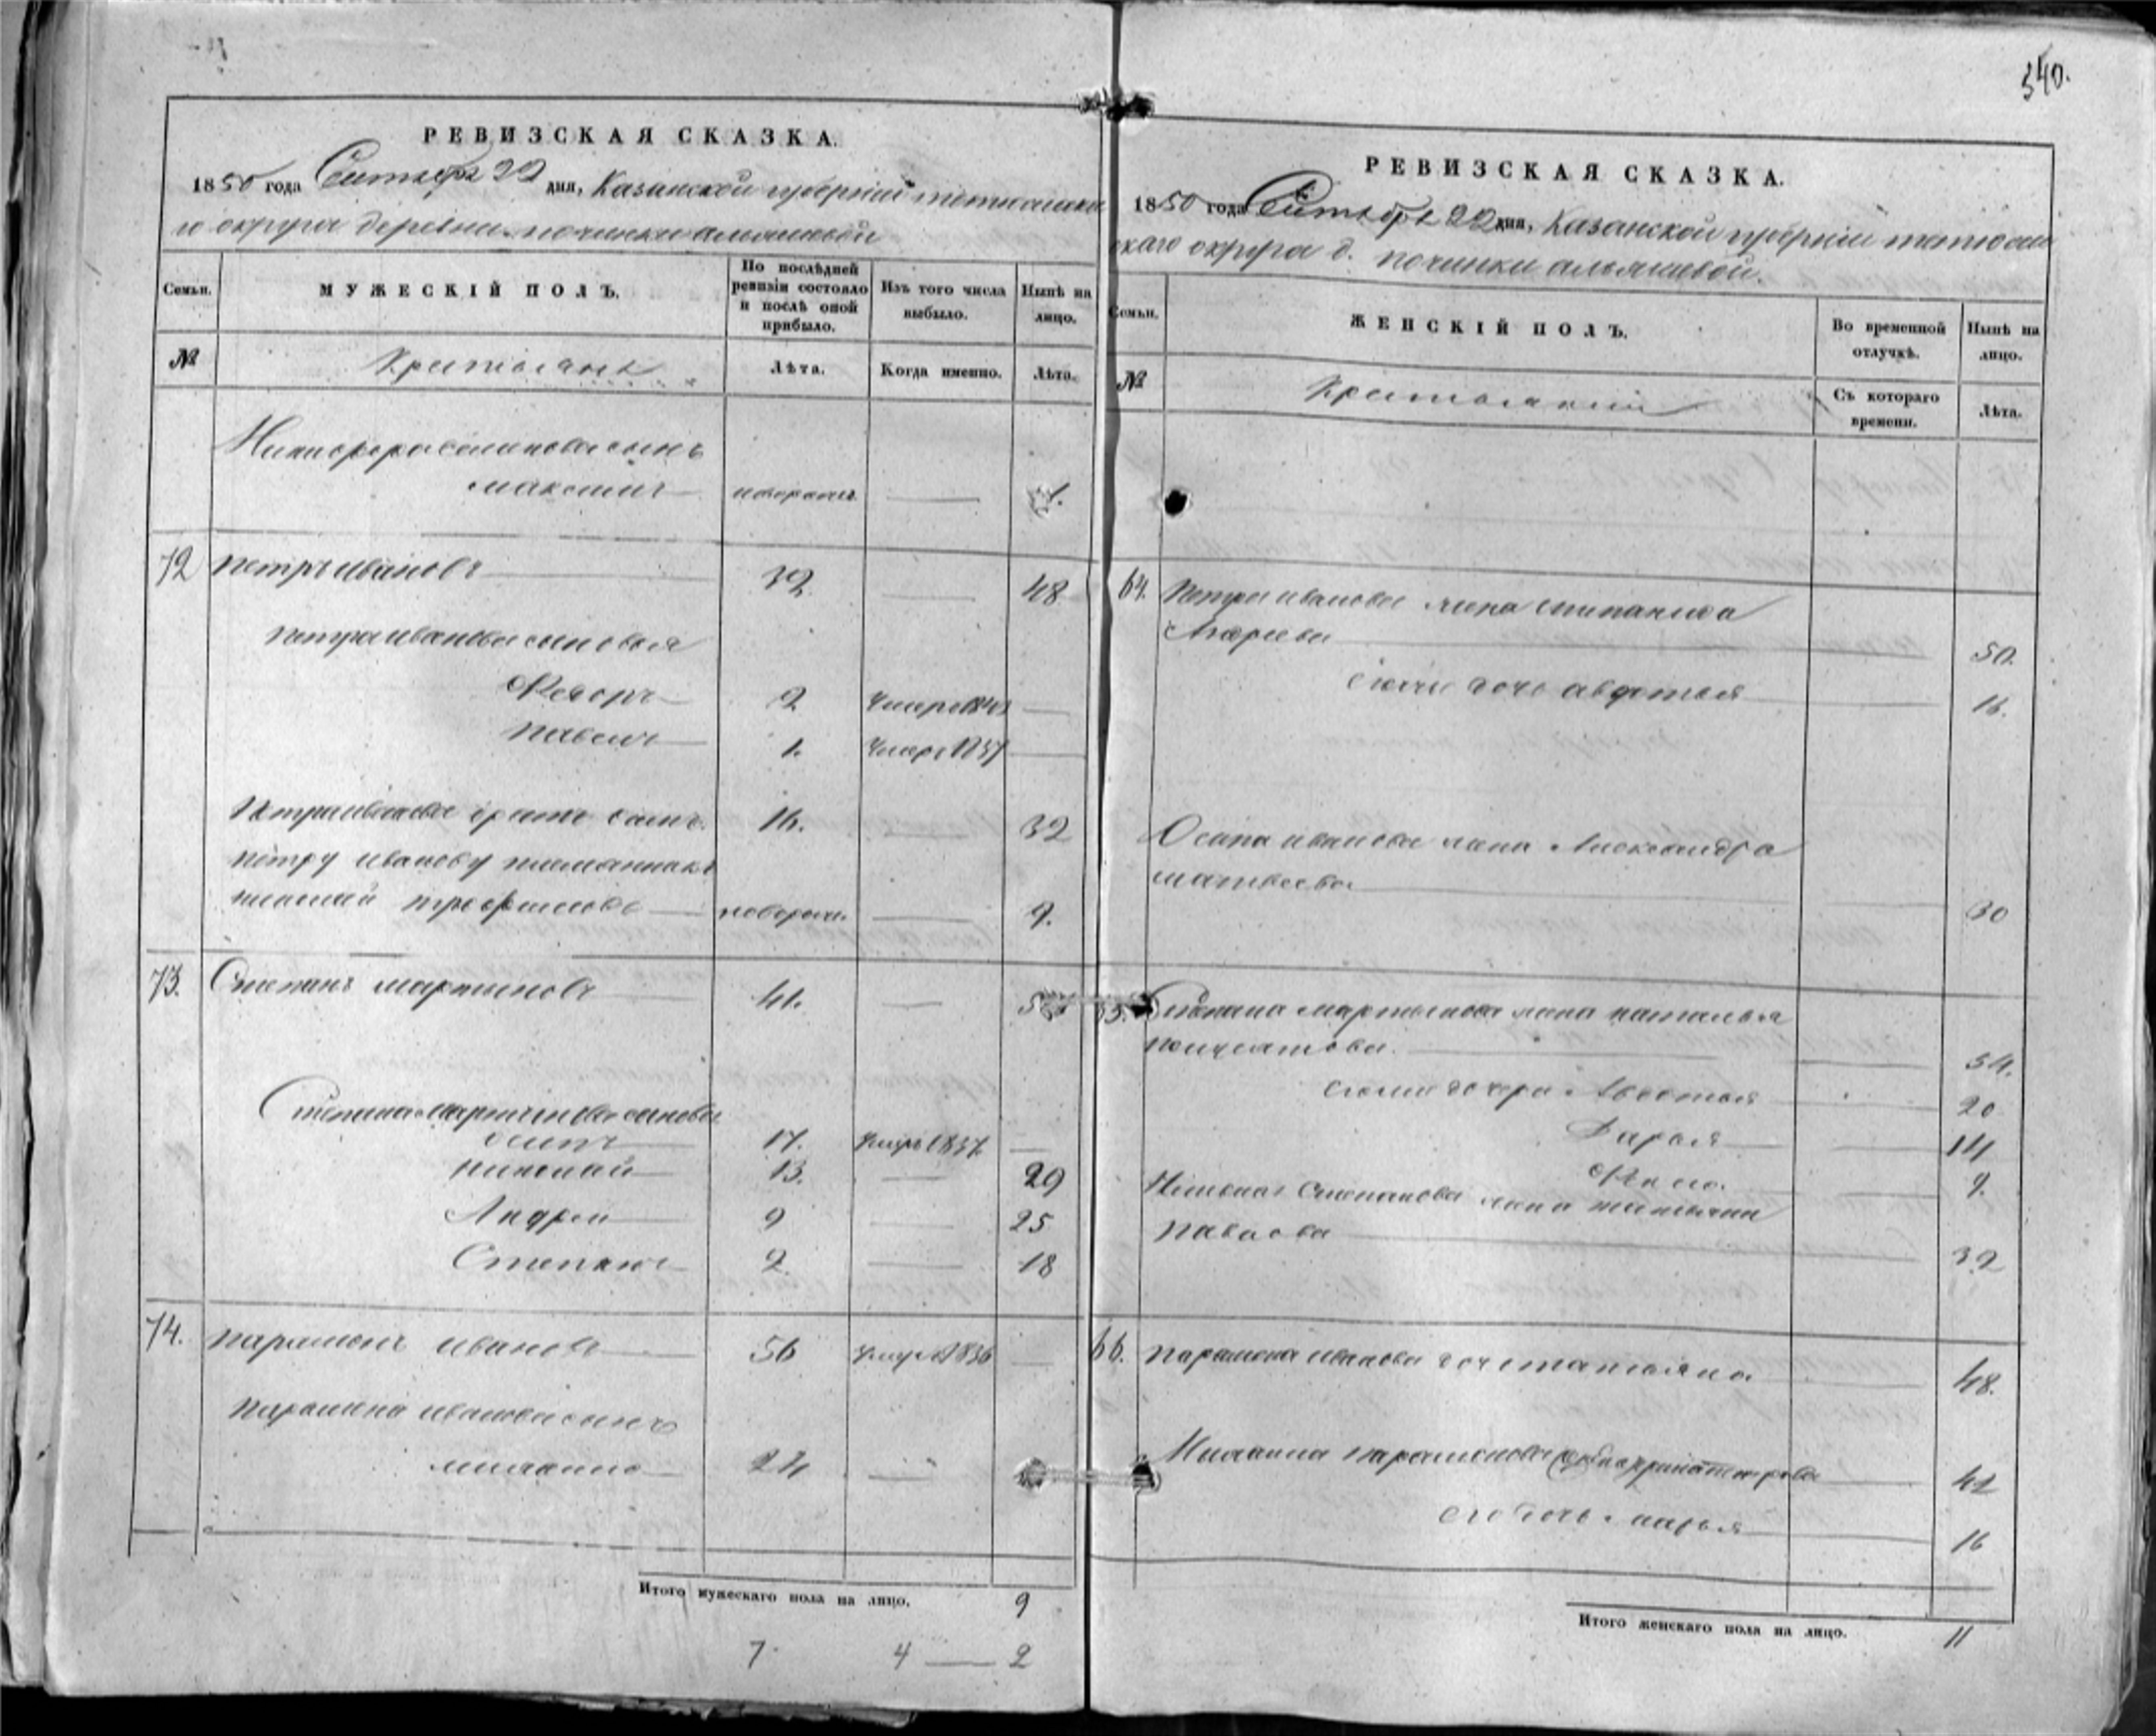 340.
РЕВИЗСКАЯ СКАЗКА.
1850 года Сентября 22 дня, Казанской губерніи тетюшска
го округа деревни починки альяшевой
Семьи. МУЖЕСКІЙ ПОЛЪ. По послѣдней ревизіи состояло и послѣ оной прибыло. Изъ того числа выбыло. Нынѣ на лицо.
№ Крестьяне Лѣта. Когда именно. Лѣта.
Никифора сынъ
максимъ новорож. 1.
72 петръ ивановъ 32. 48
петра иванова сыновья
Федоръ 2 Умеръ
павелъ 1. Умеръ 1837
Петра иванова братъ 16. 32
петру иванову племянникъ
трофимовъ новорож. 9.
73. Степанъ мартыновъ 41.
Степана мартынова сыновья
осипъ 17. Умеръ 1837.
николай 13. 29
Андрей 9 25
Степанъ 2. 18
74. парамонъ ивановъ 56 умеръ 1836
парамона иванова сынъ
24
Итого мужескаго пола на лицо. 9
7 4 — 2
РЕВИЗСКАЯ СКАЗКА.
1850 года Сентября 22 дня, Казанской губерніи тетюш
скаго округа д. починки альяшевой.
Семьи. ЖЕНСКІЙ ПОЛЪ. Во временной отлучкѣ. Нынѣ на лицо.
№ Крестьянки Съ котораго времени. Лѣта.
64. Петра иванова жена степанида
Андреева 50.
дочь авдотья 16.
Осипа иванова жена Александра
матвеева 30
Степана мартынова жена наталья
54.
дочери Авдотья 20
Дарья 14
9.
Степанова жена татьяна
павлова 32
66. парамона иванова дочь татьяна 48.
парамонова 42
его дочь марья 16
Итого женскаго пола на лицо. 11